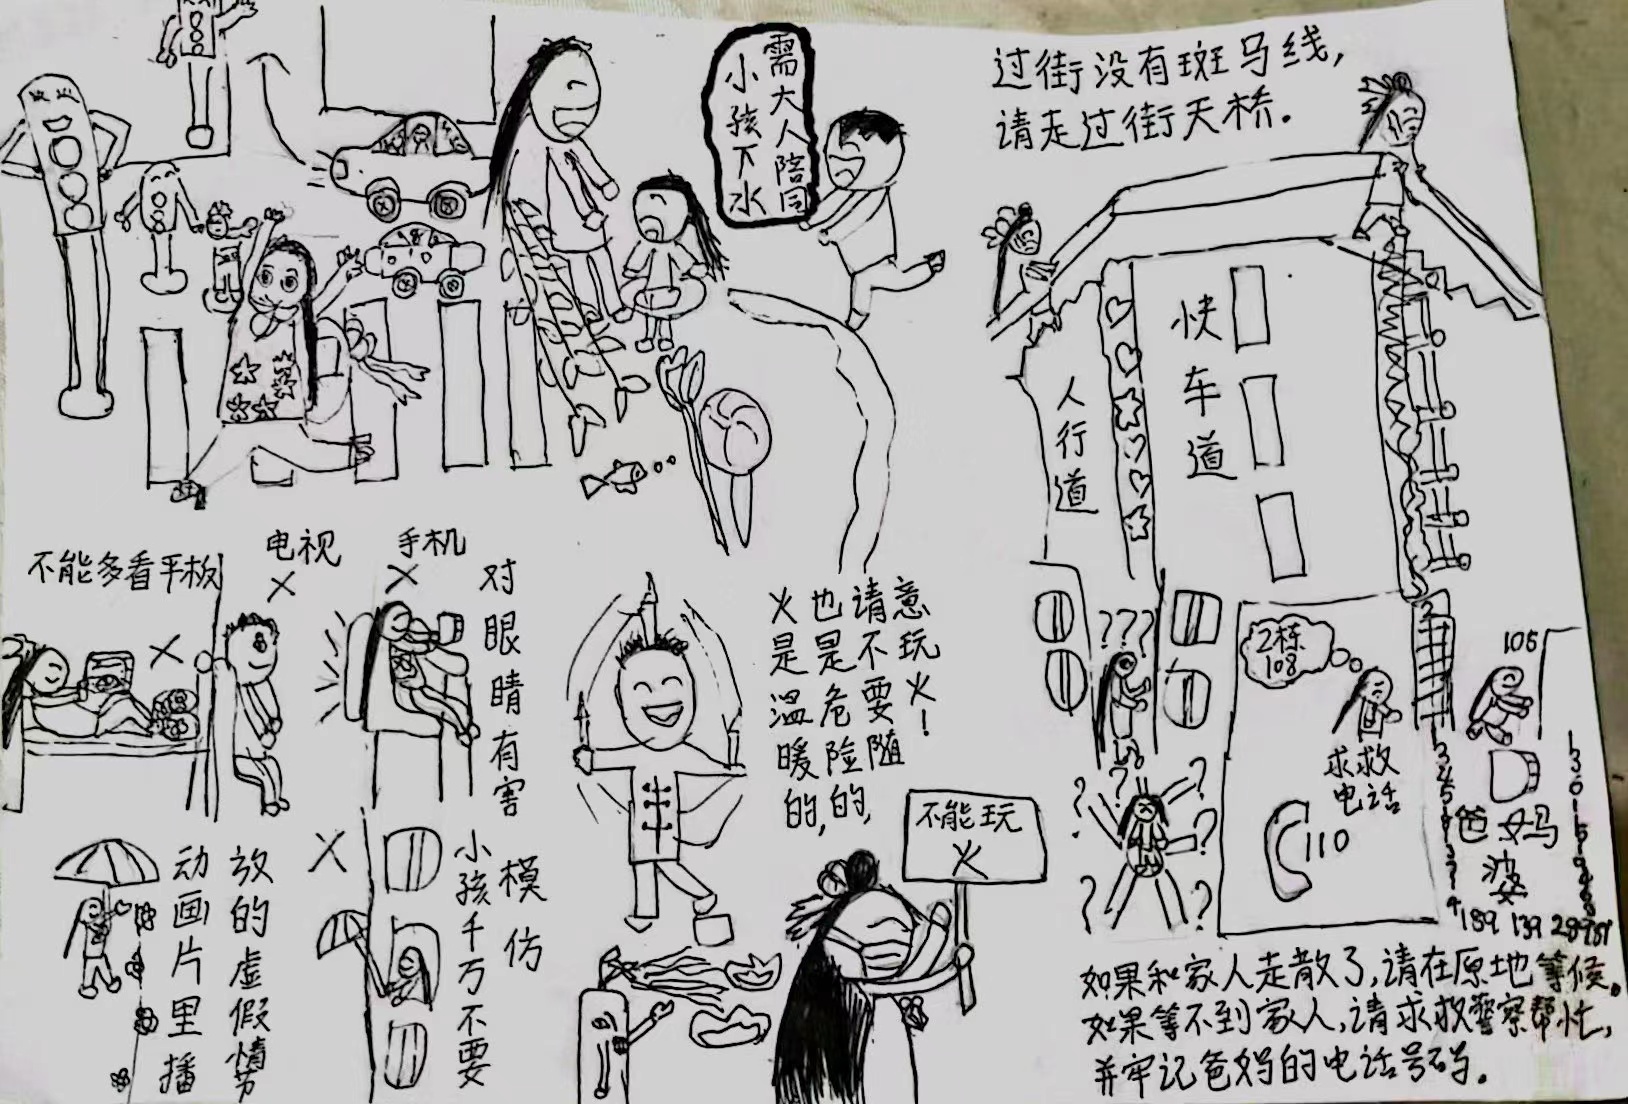 小孩下水
需大人陪同
过街没有斑马线，
请走过街天桥.
快车道
人行道
不能多看平板
电视
手机
对眼睛有害
火是温暖的，
也是危险的，
请不要随
意玩火！
不能玩
火
???
2栋
108
108
求救
电话
110
爸妈
189 139
动画片里播
放的虚假情势
小孩千万不要
模仿
如果和家人走散了，请在原地等候。
如果等不到家人，请求救警察帮忙，
并牢记爸妈的电话号码.